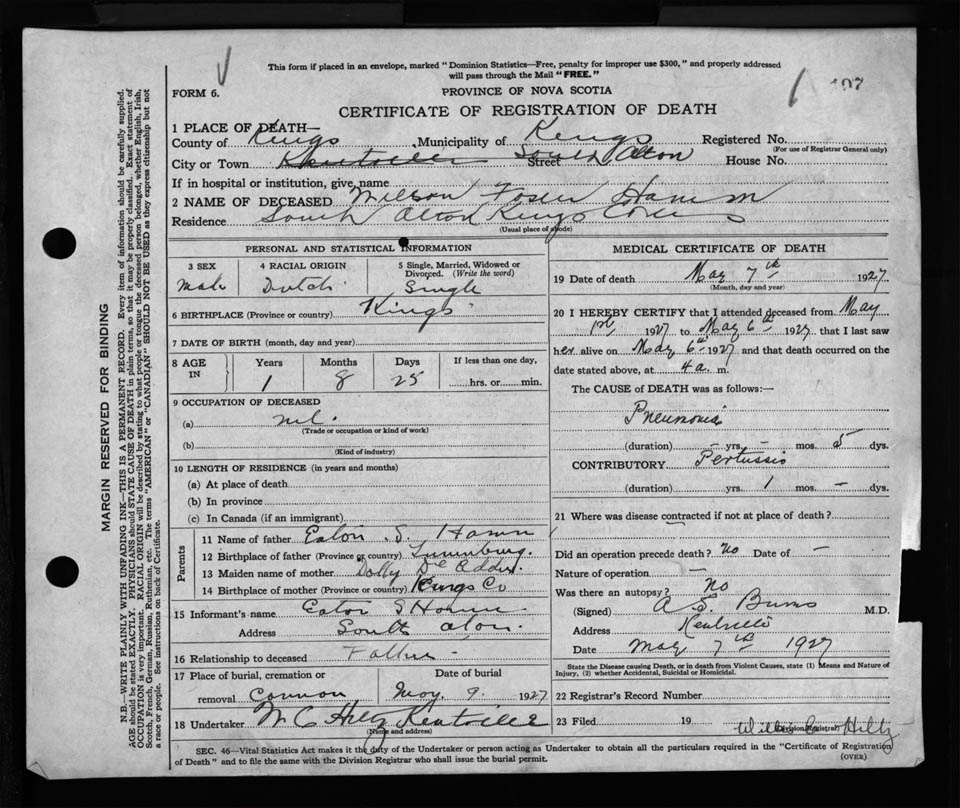 This form if placed in an envelope, marked "Dominion Statistics—Free, penalty for improper use $300," and properly addressed
will pass through the Mail "FREE."
FORM 6.
PROVINCE OF NOVA SCOTIA
CERTIFICATE OF REGISTRATION OF DEATH
1 PLACE OF DEATH—
County of Kings, Municipality of Kings Registered No.
(For use of Registrar General only)
City or Town Kentville Street South Alton House No.
If in hospital or institution, give name
2 NAME OF DECEASED
Residence South Alton Kings
(Usual place of abode)
PERSONAL AND STATISTICAL INFORMATION
3 SEX 4 RACIAL ORIGIN 5 Single, Married, Widowed or
Divorced. (Write the word)
Male Dutch Single
6 BIRTHPLACE (Province or country) Kings
7 DATE OF BIRTH (month, day and year)
8 AGE IN Years Months Days If less than one day,
1 8 25 hrs. or min.
9 OCCUPATION OF DECEASED
(a) nil
(Trade or occupation or kind of work)
(b)
(Kind of industry)
10 LENGTH OF RESIDENCE (in years and months)
(a) At place of death
(b) In province
(c) In Canada (if an immigrant)
Parents
11 Name of father Eaton S.
12 Birthplace of father (Province or country) Lunenburg.
13 Maiden name of mother Dolly
14 Birthplace of mother (Province or country) Kings Co
15 Informant's name Eaton S
Address South Alton.
16 Relationship to deceased Father
17 Place of burial, cremation or Date of burial
removal May 9. 1927
18 Undertaker Kentville
(Name and address)
MEDICAL CERTIFICATE OF DEATH
19 Date of death May 7th 1927
(Month, day and year)
20 I HEREBY CERTIFY that I attended deceased from May
1st 1927 to May 6th 1927 that I last saw
her alive on May 6th 1927 and that death occurred on the
date stated above, at 4 a. m.
The CAUSE of DEATH was as follows:—
Pneumonia
(duration) – yrs. mos. 5 dys.
CONTRIBUTORY Pertussis
(duration) yrs. 1 mos. – dys.
21 Where was disease contracted if not at place of death?
Did an operation precede death? no Date of –
Nature of operation –
Was there an autopsy? no
(Signed) A S. Burns M.D.
Address Kentville
Date May 7th 1927
State the Disease causing Death, or in death from Violent Causes, state (1) Means and Nature of
Injury, (2) whether Accidental, Suicidal or Homicidal.
22 Registrar's Record Number
23 Filed 19
(Division Registrar)
SEC. 46—Vital Statistics Act makes it the duty of the Undertaker or person acting as Undertaker to obtain all the particulars required in the "Certificate of Registration
of Death" and to file the same with the Division Registrar who shall issue the burial permit.
(OVER)
MARGIN RESERVED FOR BINDING
N.B.—WRITE PLAINLY WITH UNFADING INK—THIS IS A PERMANENT RECORD. Every item of information should be carefully supplied.
AGE should be stated EXACTLY. PHYSICIANS should STATE CAUSE OF DEATH in plain terms, so that it may be properly classified. Exact statement of
OCCUPATION is very important. RACIAL ORIGIN will be described by stating to what people or tongue the deceased person belonged, whether English, Irish,
Scotch, French, German, Russian, Ruthenian, etc. The terms "AMERICAN" or "CANADIAN" SHOULD NOT BE USED as they express citizenship but not
a race or people. See instructions on back of Certificate.